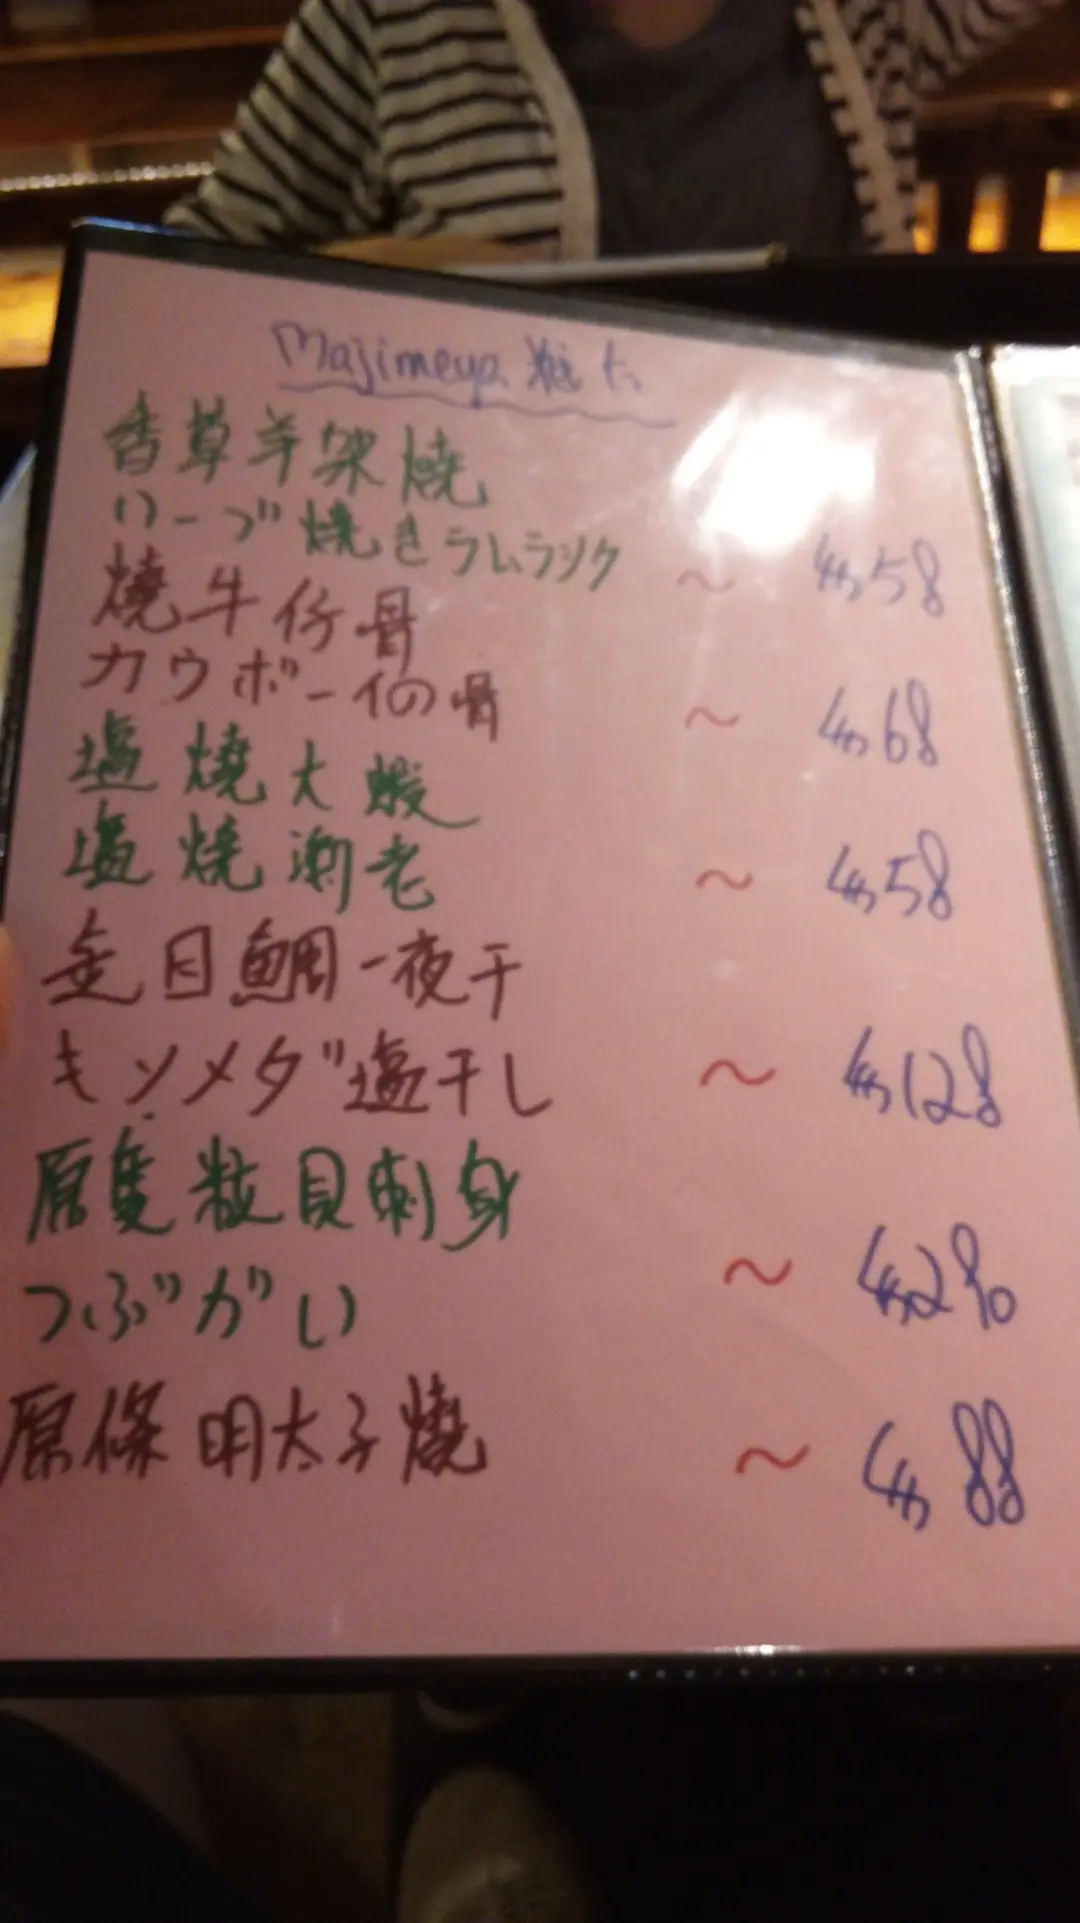 Majimeya
香草羊架燒
ハーブ焼きラムラック ~ 58
燒牛仔骨
カウボーイの骨 ~ 68
塩燒大蝦
塩焼海老 ~ 58
金目鯛一夜干
キンメダ塩干し ~ 128
原隻粒貝刺身
つぶがい ~
原條明太子燒 ~ 88